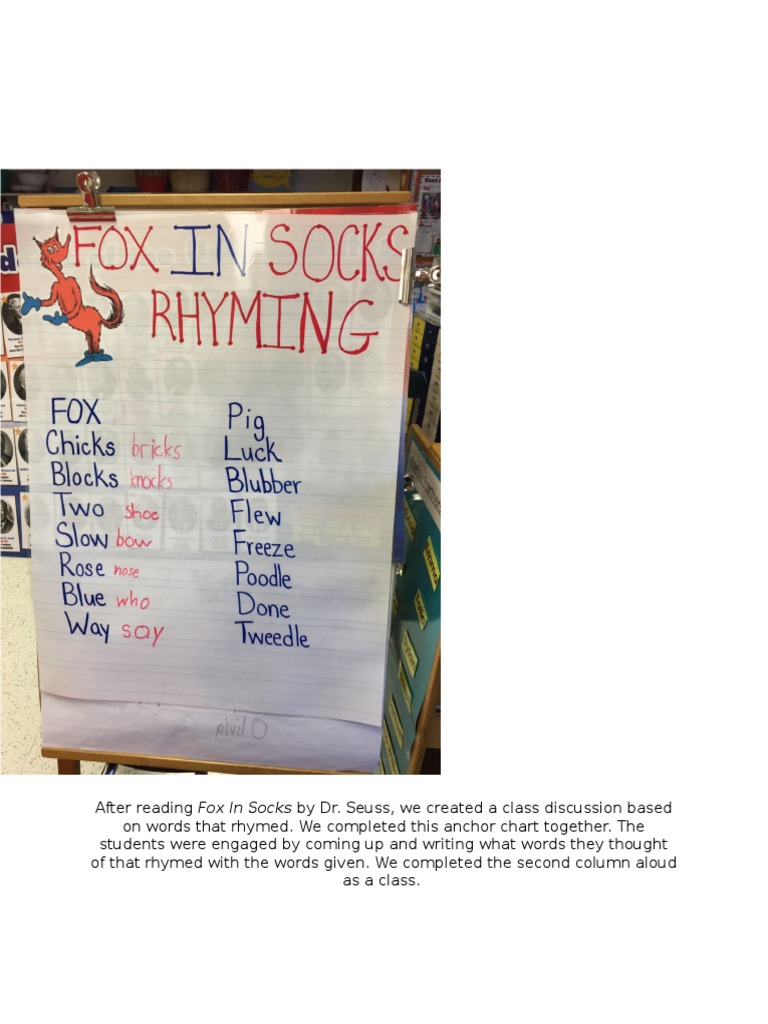 FOX IN SOCKS
RHYMING
FOX
Chicks bricks
Blocks knocks
Two shoe
Slow bow
Rose nose
Blue who
Way say
Pig
Luck
Blubber
Flew
Freeze
Poodle
Done
Tweedle
Olivia
After reading Fox In Socks by Dr. Seuss, we created a class discussion based
on words that rhymed. We completed this anchor chart together. The
students were engaged by coming up and writing what words they thought
of that rhymed with the words given. We completed the second column aloud
as a class.